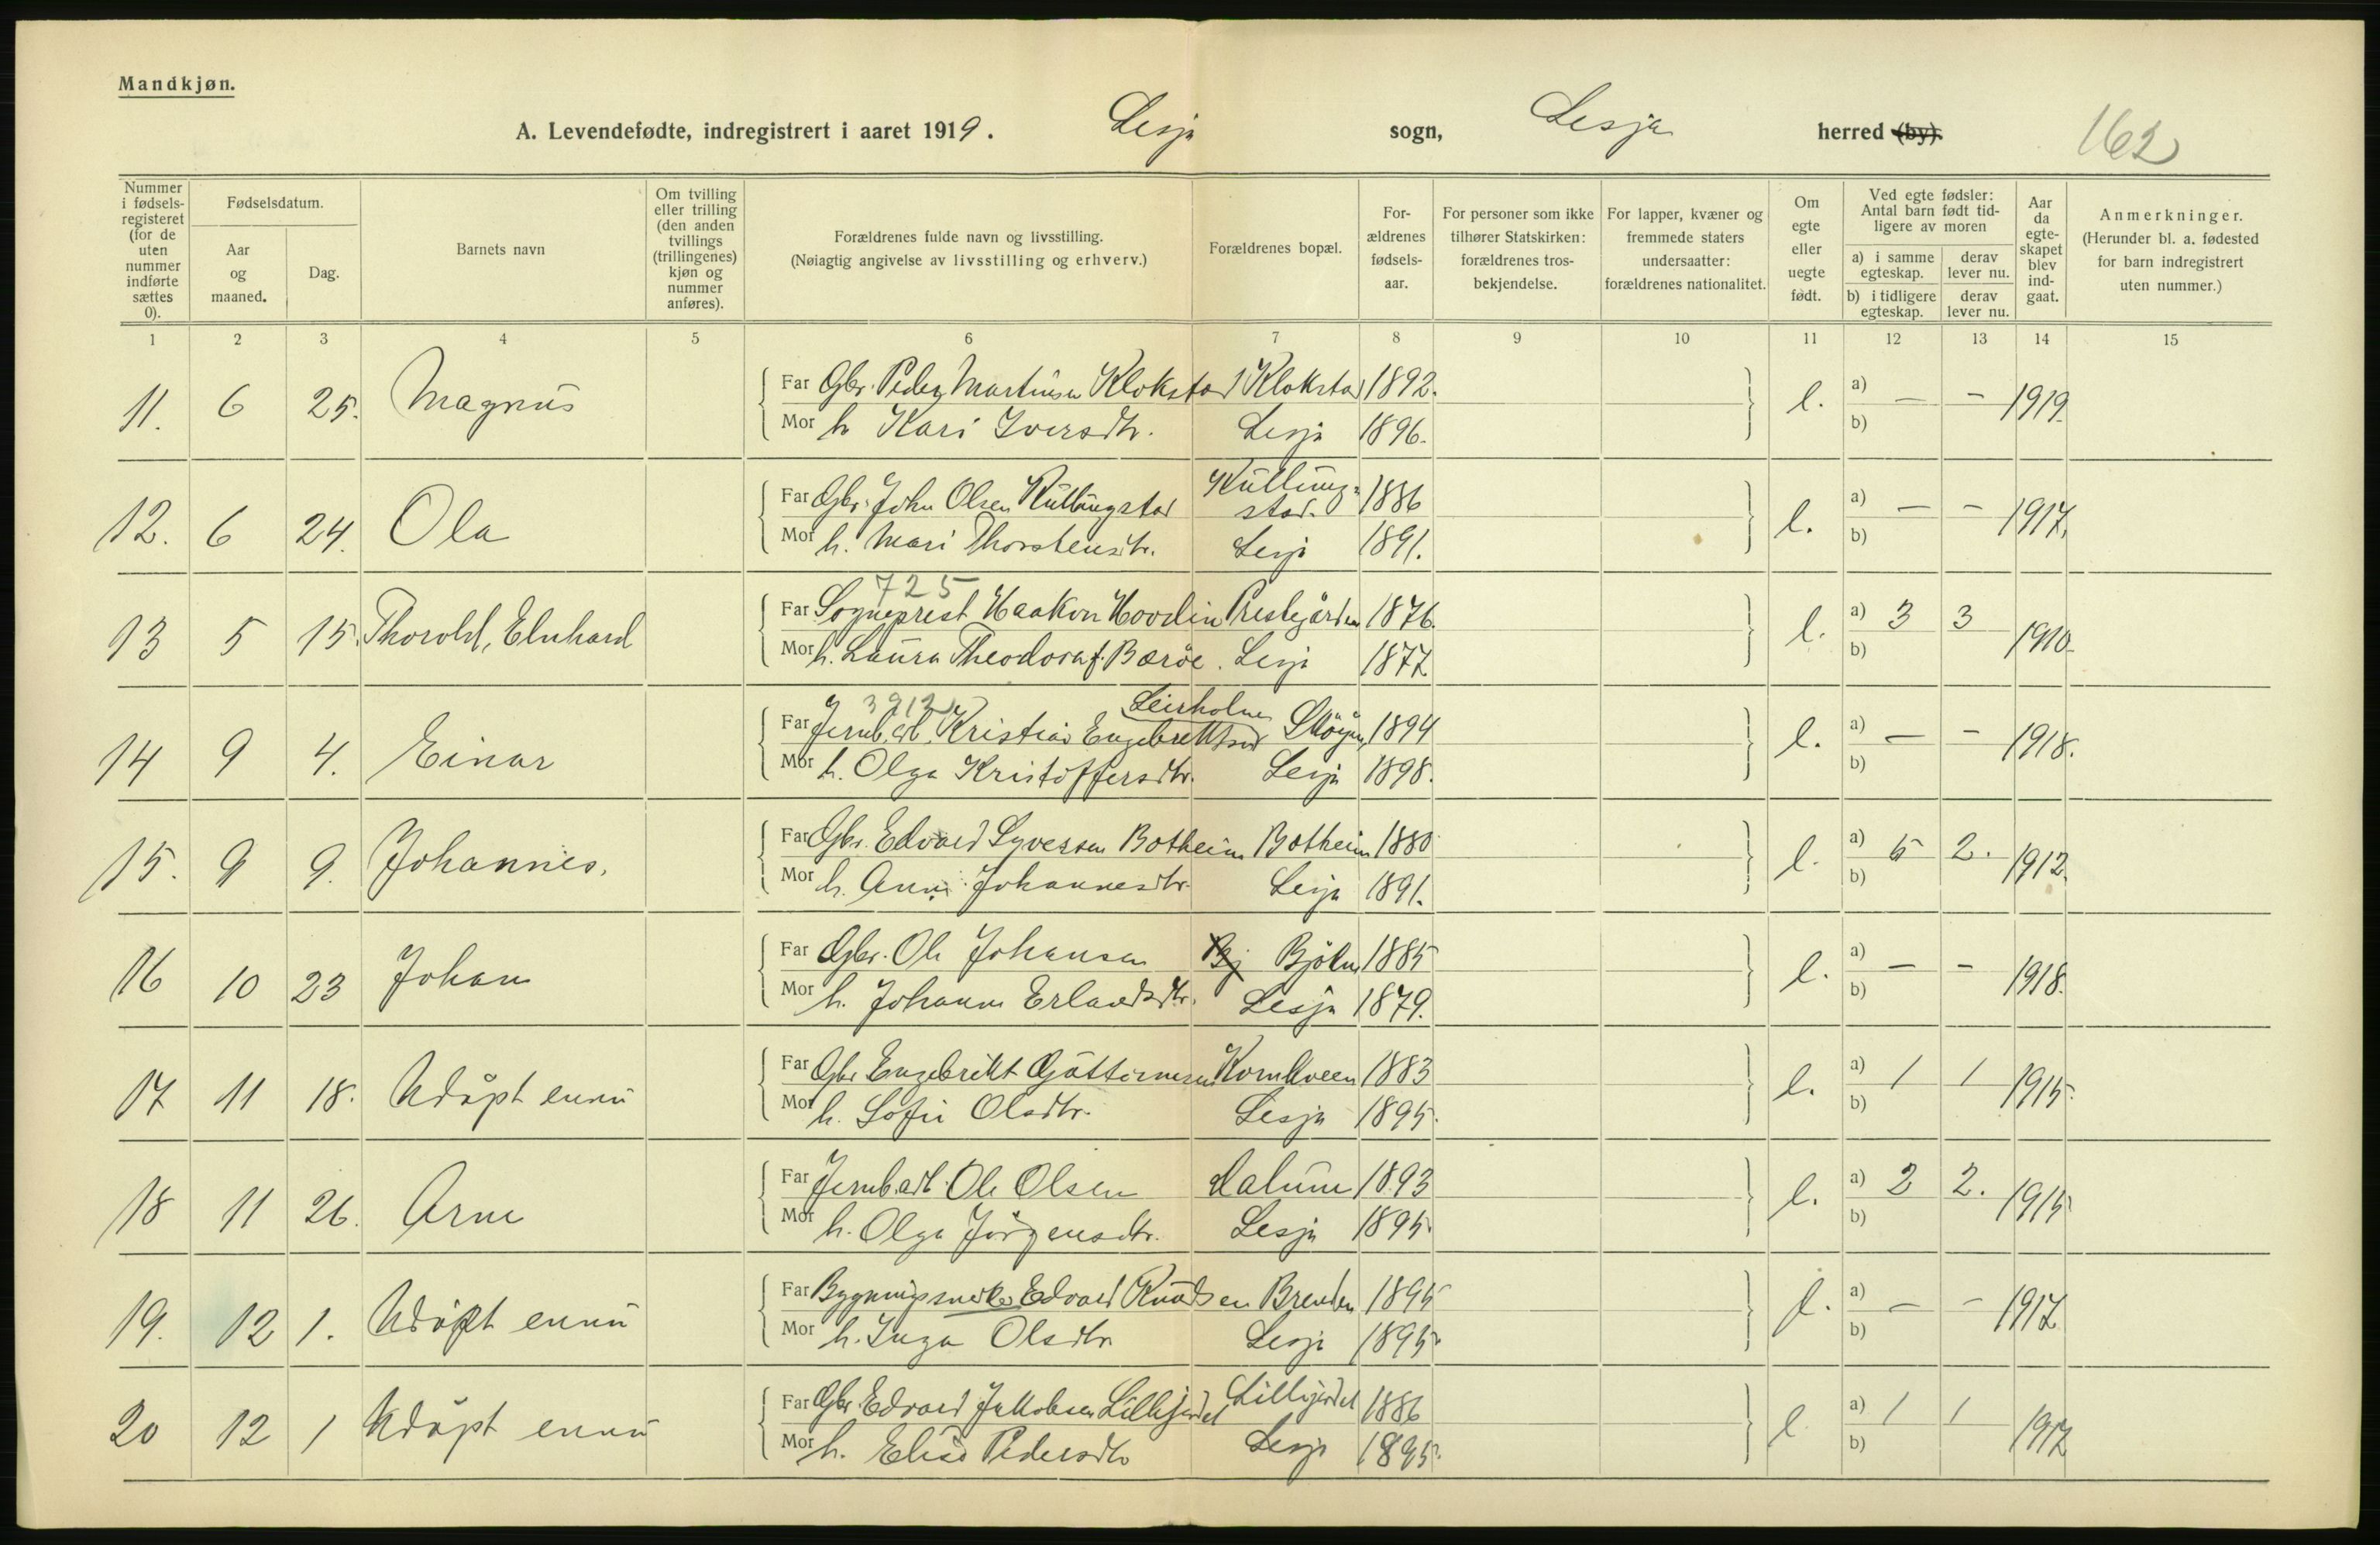 Mandkjøn.
A. Levendefødte, indregistrert i aaret 1919. Lesja sogn, Lesja herred (by). 162
Nummer i fødsels-registeret (for de uten nummer indførte sættes 0).
Fødselsdatum.
Aar og maaned.
Dag.
Barnets navn
Om tvilling eller trilling (den anden tvillings (trillingenes) kjøn og nummer anføres).
Forældrenes fulde navn og livsstilling.
(Nøiagtig angivelse av livsstilling og erhverv.)
Forældrenes bopæl.
For-ældrenes fødsels-aar.
For personer som ikke tilhører Statskirken: forældrenes tros-bekjendelse.
For lapper, kvæner og fremmede staters undersaatter: forældrenes nationalitet.
Om egte eller uegte født.
Ved egte fødsler: Antal barn født tid-ligere av moren
a) i samme egteskap. derav lever nu.
b) i tidligere egteskap. derav lever nu.
Aar da egte-skapet blev ind-gaat.
Anmerkninger.
(Herunder bl. a. fødested for barn indregistrert uten nummer.)
1 2 3 4 5 6 7 8 9 10 11 12 13 14 15
Far Gbr. Peder Martinsen Klokstad Klokstad 1892.
11. 6 25. Magnus e. a) — — 1919.
Mor h. Kari Iversdtr. Lesja 1896. b)
Far Gbr. John Olsen Kullingstad Kulling-stad. 1886
12. 6 24. Ola e. a) — — 1917.
Mor h. Mari Thorstensdtr. Lesja 1891. b)
725
Far Sogneprest Haakon Hovdin Prestegården 1876.
13 5 15. Thorold, Elnhard e. a) 3 3 1910.
Mor h. Laura Theodora f. Barøe. Lesja 1877 b)
3912 Leirholm
Far Jernb.arb. Kristian Engebrettsen 1894
14 9 4. Einar e. a) — — 1918.
Mor h. Olga Kristoffersdtr. Lesja 1898. b)
Far Gbr. Edvard Syversen Botheim Botheim 1880
15. 9 9. Johannes. e. a) 5 2. 1912.
Mor h. Anne Johannesdtr. Lesja 1891. b)
Far Gbr. Ole Johansen Bj Bjökne 1885
16 10 23 Johan e. a) — — 1918.
Mor h. Johanne Erlandsdtr. Lesja 1879. b)
Far Gbr Engebrikt Guttormsen Kornkveen 1883
17 11 18. Udöpt ennu e. a) 1 1 1915.
Mor h. Sofie Olsdtr. Lesja 1895. b)
Far Jernb.arb. Ole Olsen Dalum 1893
18 11 26. Arne e. a) 2 2. 1915.
Mor h. Olga Jörgensdtr. Lesja 1895. b)
Far Bygningssnekker Edvard Knudsen Brenden 1895
19. 12 1. Udöpt ennu e. a) — — 1917
Mor h. Inga Olsdtr. Lesja 1895. b)
Far Gbr. Edvard Jakobsen Lillejordet Lillejordet 1886
20 12 1 Udöpt ennu e a) 1 1 1917
Mor h. Elise Pedersdtr Lesja 1895. b)